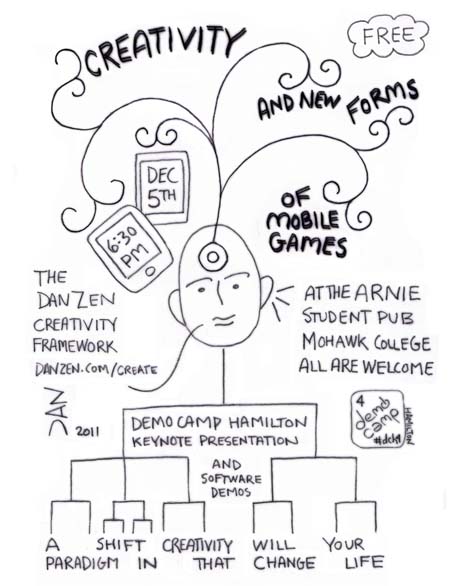 CREATIVITY
FREE
AND NEW FORMS
OF
MOBILE
GAMES
DEC
5TH
6:30
PM
THE
DANZEN
CREATIVITY
FRAMEWORK
DANZEN.COM/CREATE
AT THE ARNIE
STUDENT PUB
MOHAWK COLLEGE
ALL ARE WELCOME
DAN
2011
DEMO CAMP HAMILTON
KEYNOTE PRESENTATION
4
demo
camp
HAMILTON
AND
SOFTWARE
DEMOS
A SHIFT CREATIVITY WILL YOUR
PARADIGM IN THAT CHANGE LIFE